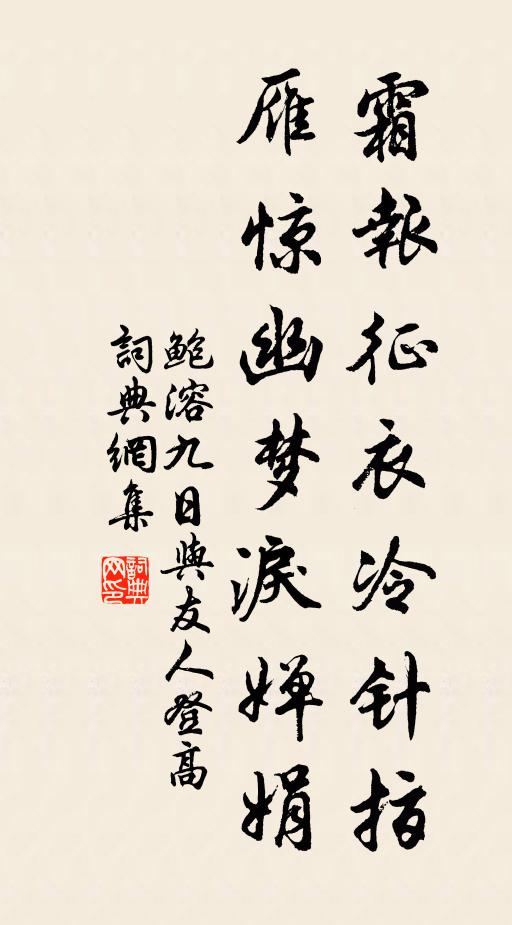 霜報征衣冷针指
雁惊幽梦淚婵娟
鲍溶九日與友人登高
詞典網集
詞典网印